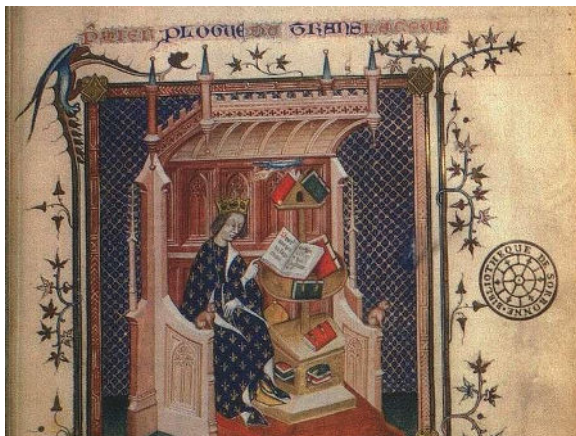 PLOGUE DU TRANSLATEUR
BIBLIOTHEQUE DE SORBONNE